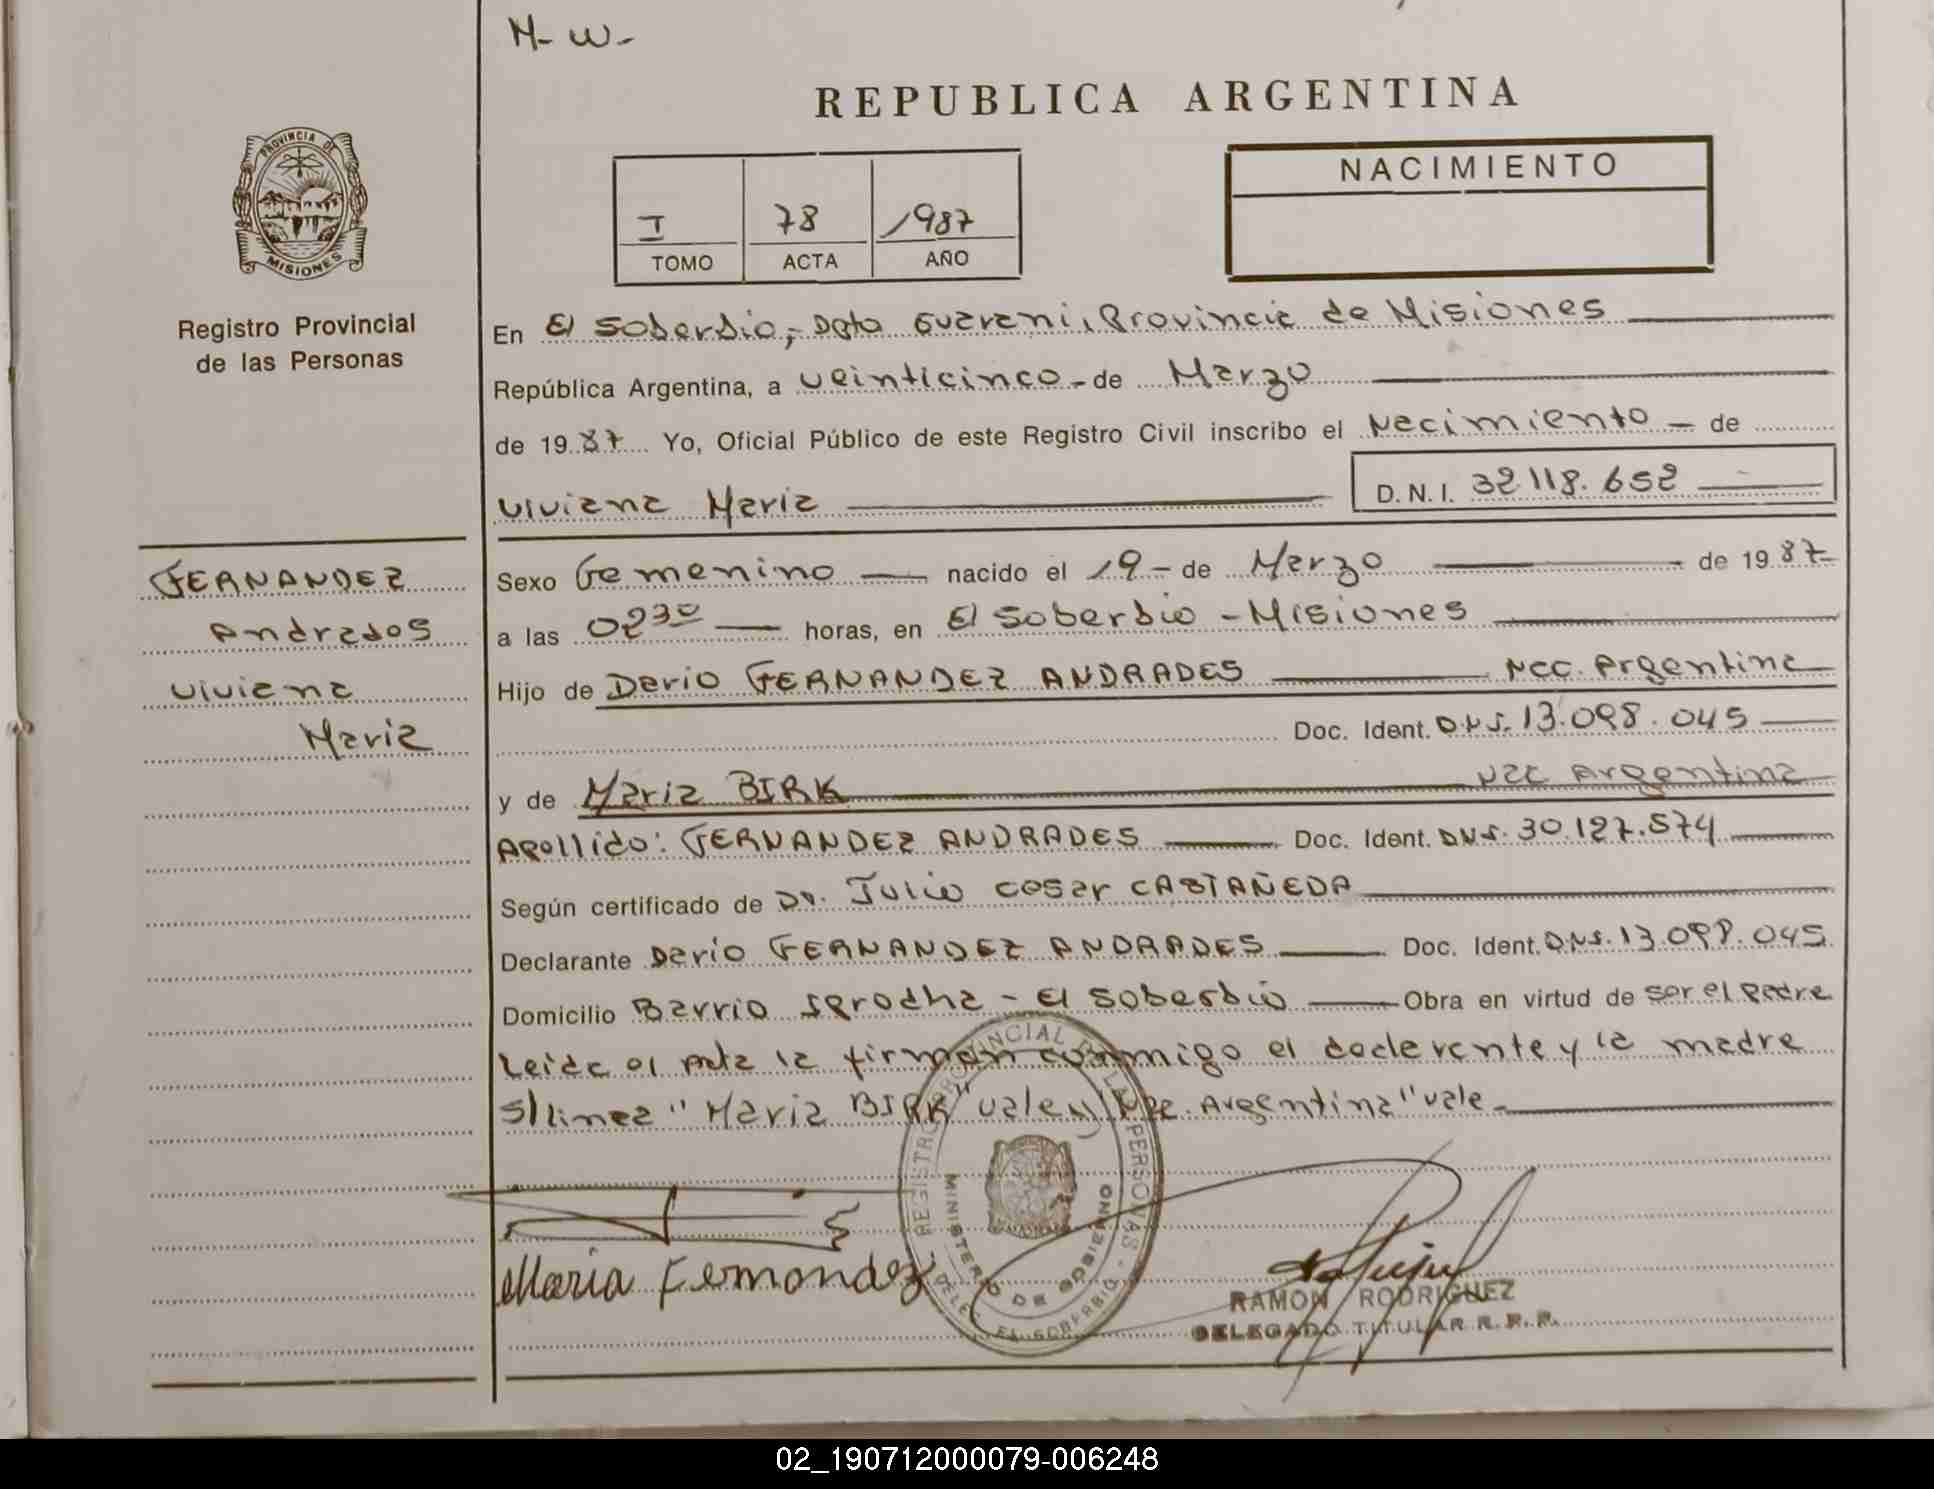 M- W-
REPUBLICA ARGENTINA
PROVINCIA DE
MISIONES
Registro Provincial
de las Personas
I 78 1987
TOMO ACTA AÑO
NACIMIENTO
En El Soberbio,- Dpto Guarani, Provincia de Misiones
República Argentina, a veinticinco - de Marzo
de 19 87 Yo, Oficial Público de este Registro Civil inscribo el Nacimiento - de
Viviana Maria D. N. I. 32 118. 652
FERNANDEZ
Andrades
Viviana
Maria
Sexo Femenino nacido el 19 - de Marzo de 19 87-
a las 02 30 horas, en El Soberbio - Misiones
Hijo de Dario FERNANDEZ ANDRADES Nac. Argentina
Doc. Ident. D.N.I. 13.098.045
y de Maria BIRK Nac Argentina
Apellido: FERNANDEZ ANDRADES Doc. Ident. DNI. 30.127.574
Según certificado de Dr. Julio Cesar CASTAÑEDA
Declarante Dario FERNANDEZ ANDRADES Doc. Ident. D.N.I. 13.098.045
Domicilio Barrio - El Soberbio Obra en virtud de ser el Padre
Leida el Acta la firman conmigo el declarante y la madre
S/linea "Maria BIRK" vale y "Nac. Argentina" vale-
REGISTRO PROVINCIAL DE LAS PERSONAS -
MINISTERIO DE GOBIERNO
DELEG. EL SOBERBIO
Maria Fernandez
RAMON RODRIGUEZ
DELEGADO TITULAR R. P. P.
02_190712000079-006248